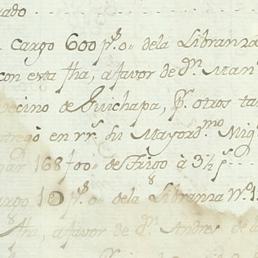 cargo 600 p.s 0., dela Libranza
con esta fha, a favor de D.n Man
Vecino de Guichapa, p.r otros ta
tregó en rr.s su Mayord.mo Mig
gar 168 f 00., de Trigo à 3½ p
argo 10 p.s 0., dela Libranza N.o 1
fha, a favor de D.n Andres de